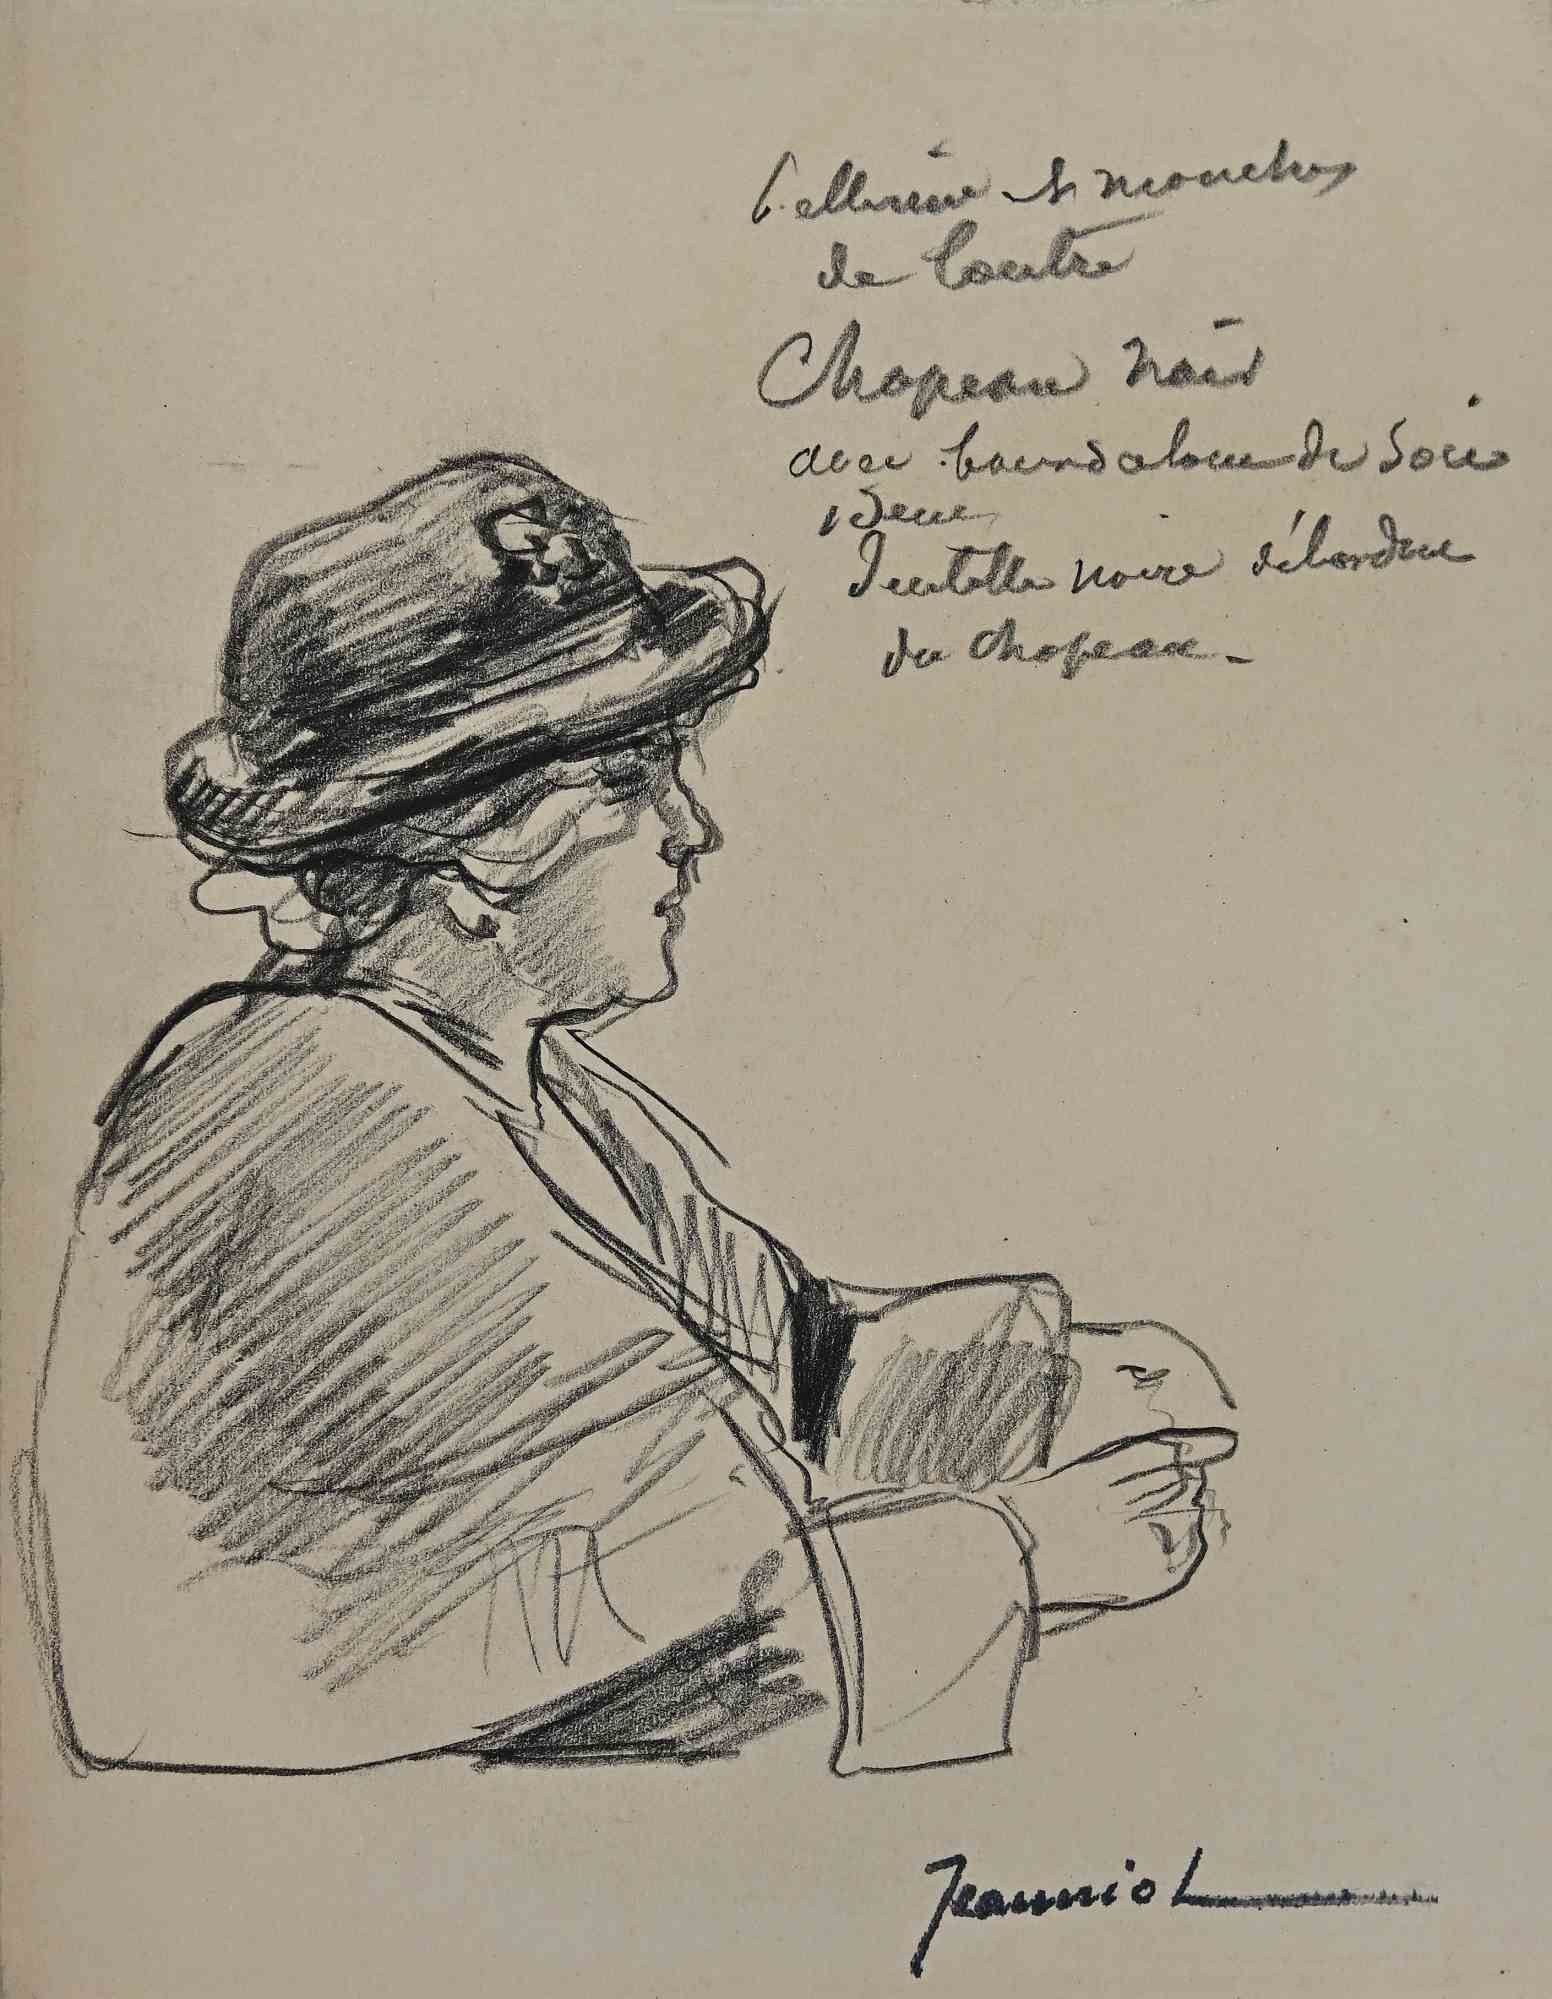 Pellerine et manches
de loutre
Chapeau noir
avec bourdaloue de soie
idem
Dentelle noire débordue
du chapeau -
Jeanniot